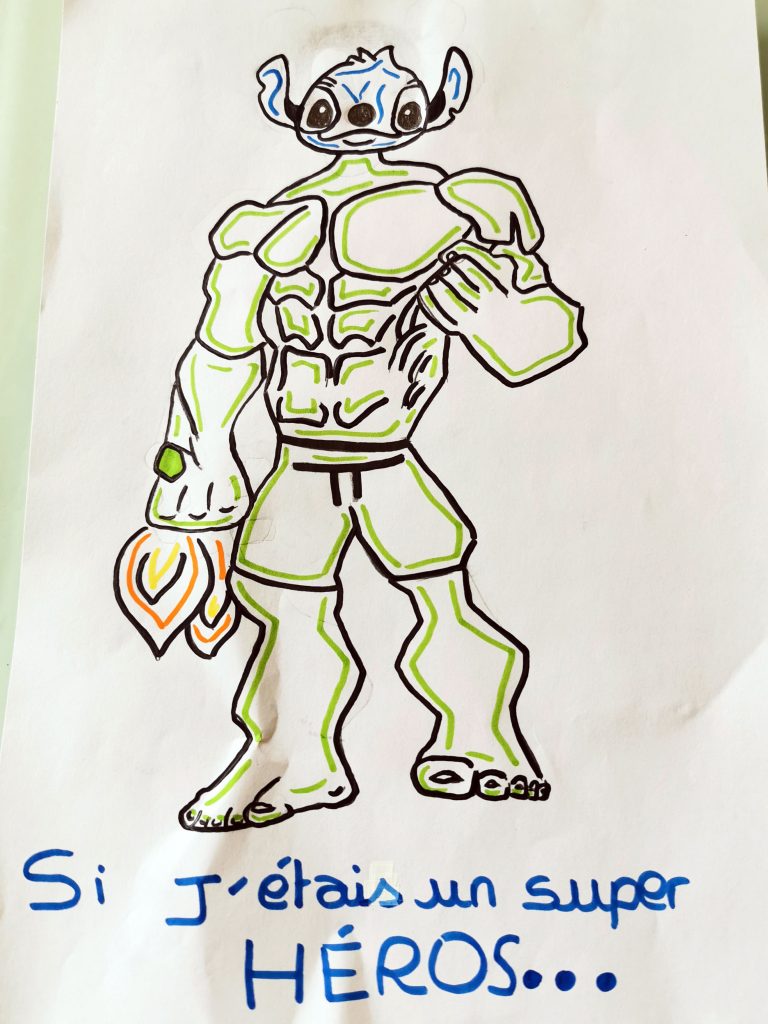 Si J'étais un super
HÉROS...